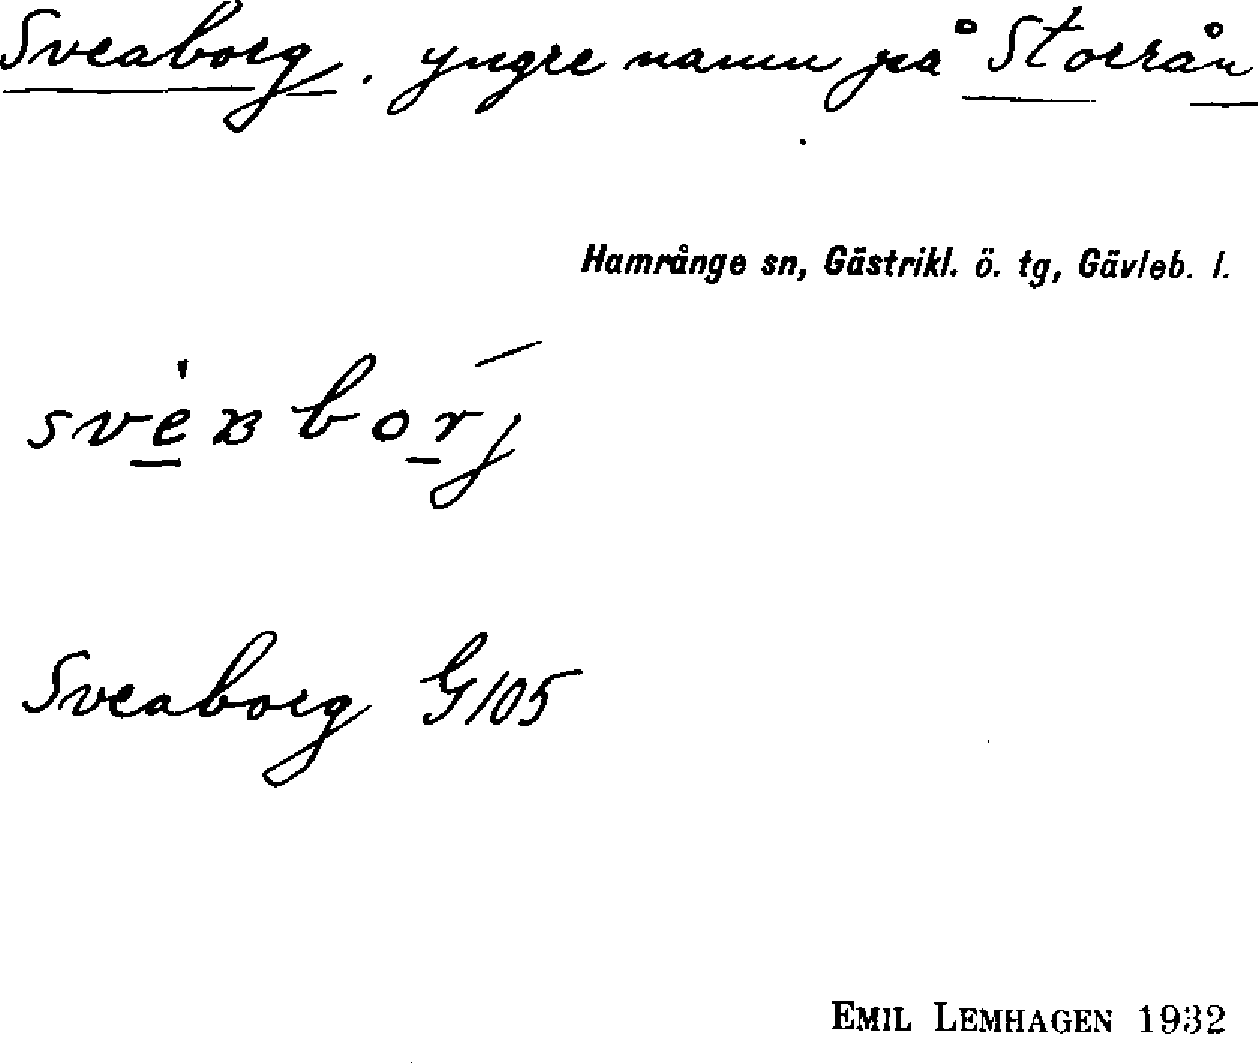 Sveaborg, yngre namn på Storrån
Hamrånge sn, Gästrikl. ö. tg, Gävleb. l.
Sveaborg G105
EMIL LEMHAGEN 1932